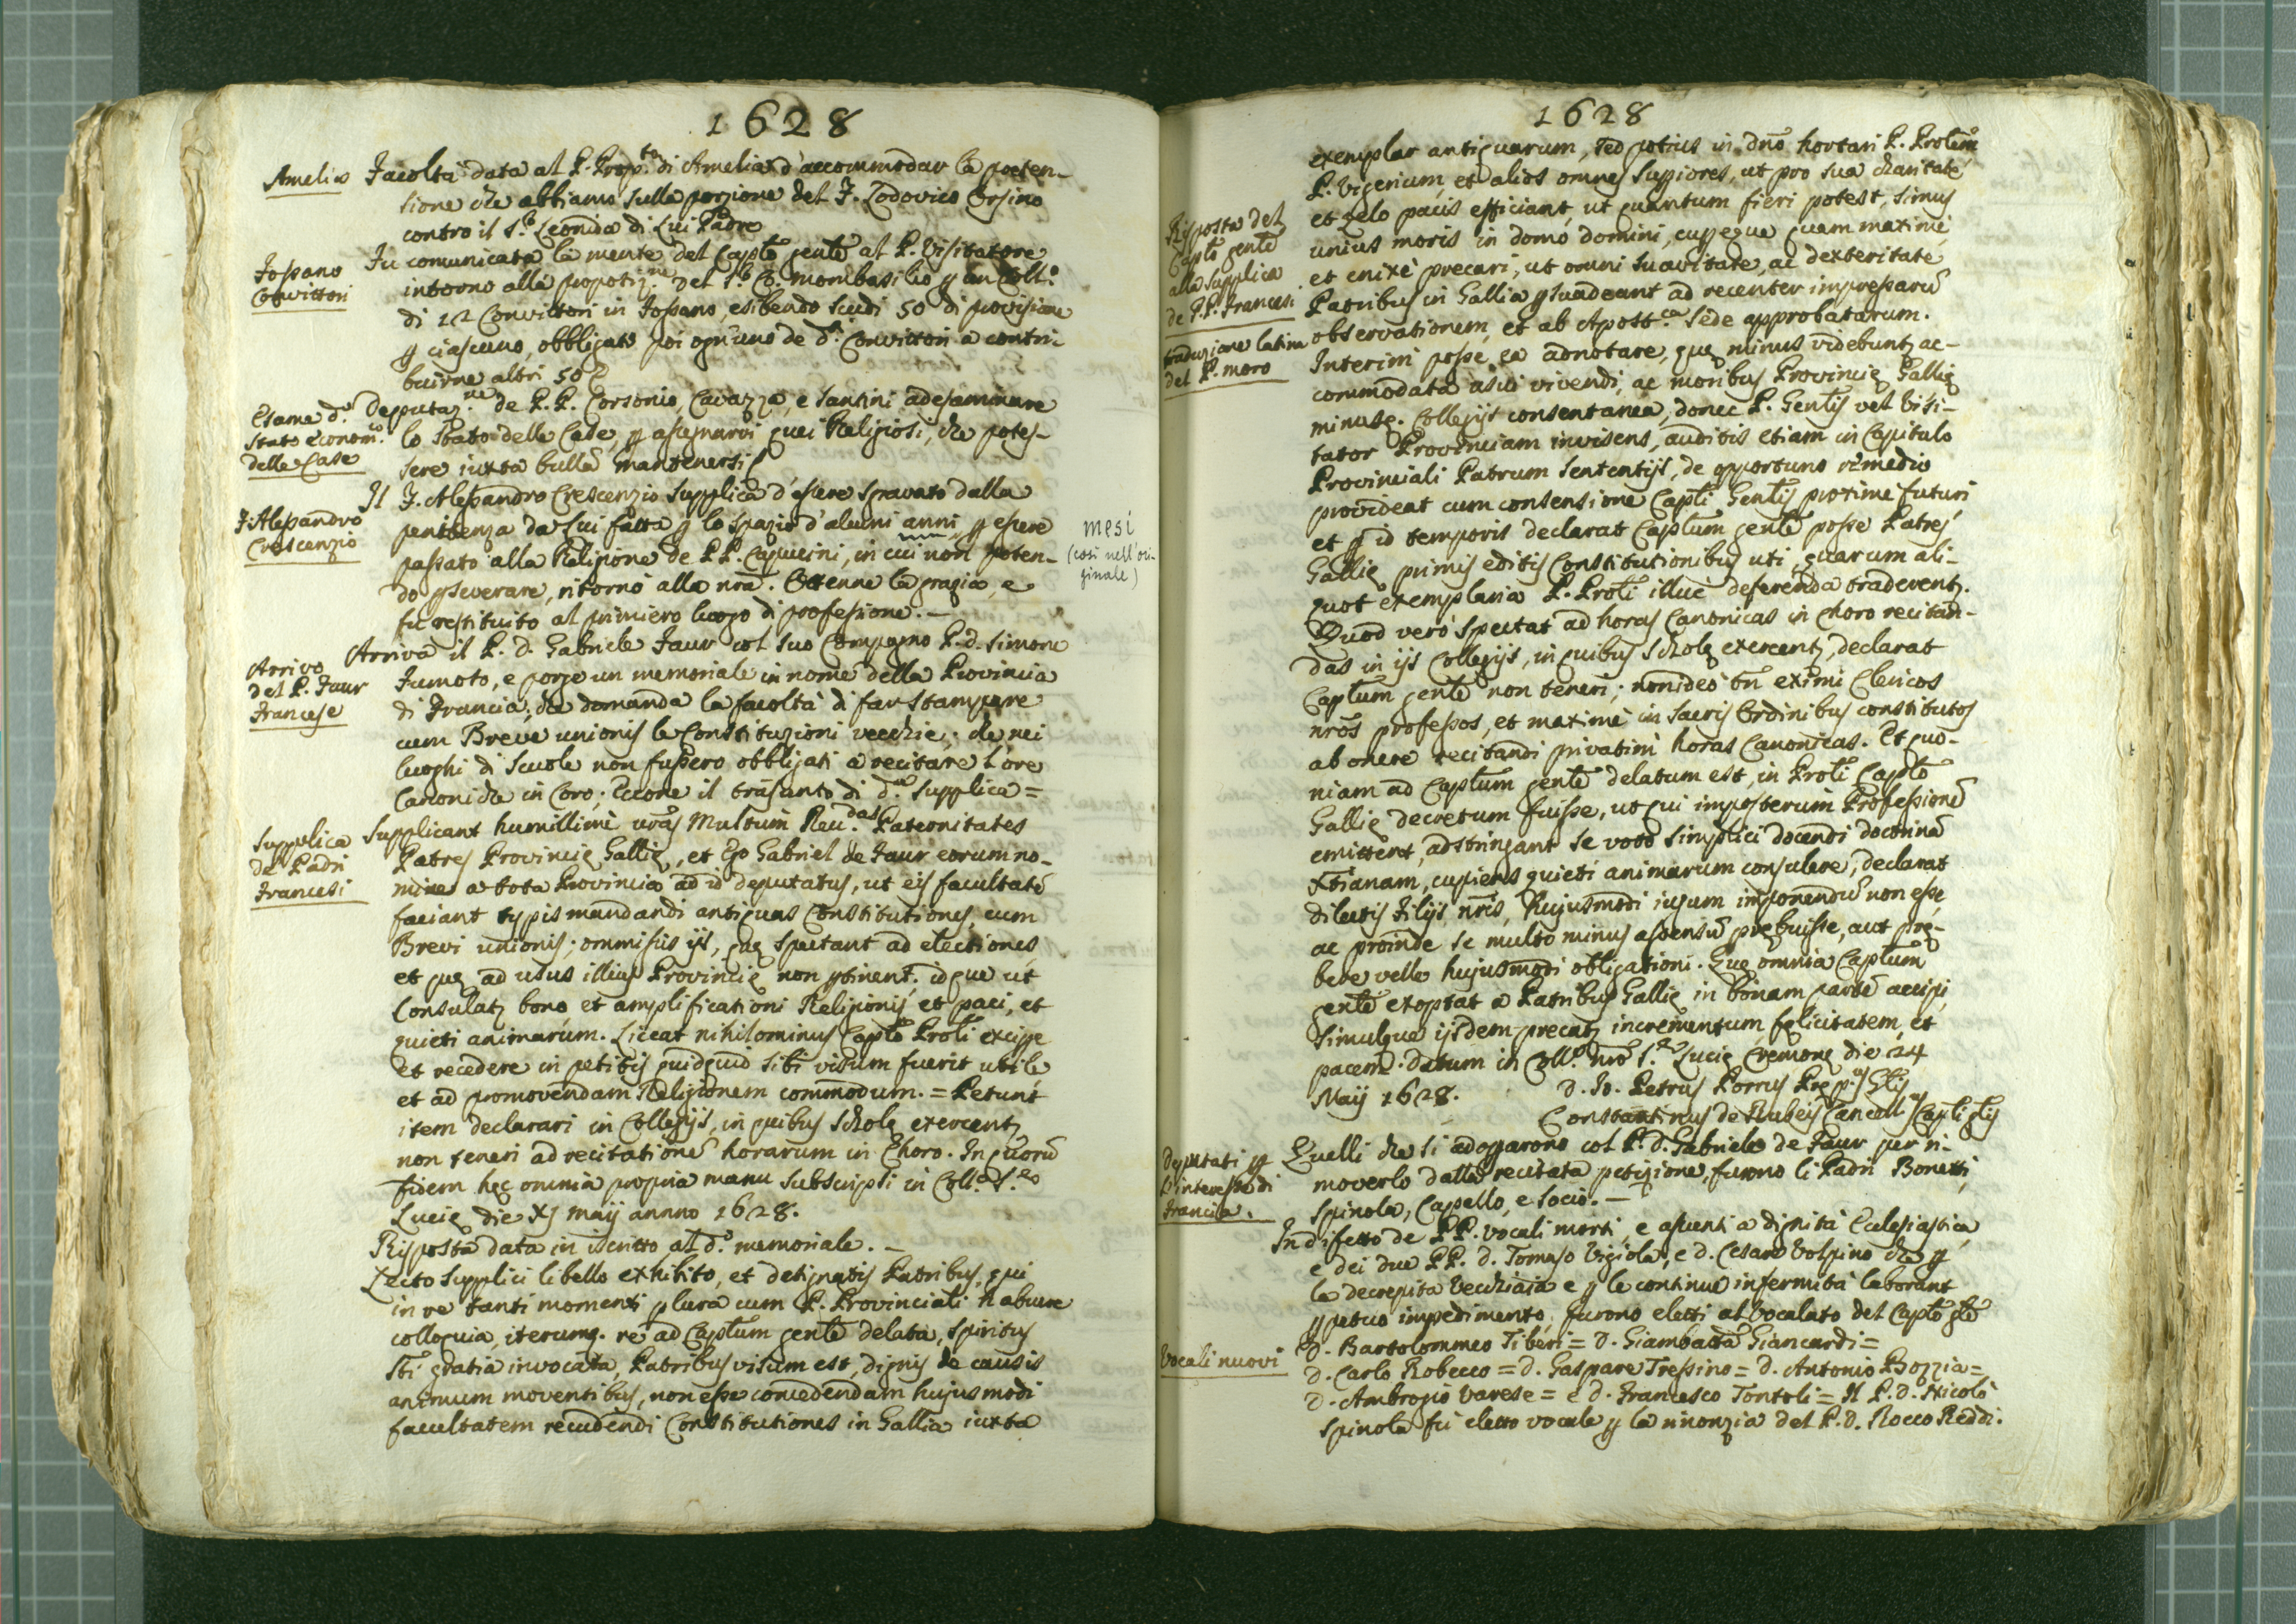 1628
Amelia
Facoltà data al P. Prop.to di Amelia d'accommodar la preten-
sione che abbiamo sulla porzione del F. Lodovico Orsino
contro il S.r Leonida di Lui Padre
Fossano
Convittori
Fu comunicata la mente del Capto gentle al P. Visitatore
intorno alla propotiz.ne del S.r Co. Mombasilio p un Coll.o
di 12 Convittori in Fossano, esibendo scudi 50 di provisione
p ciascuno, obbligato poi ogn'uno de d.i Convittori a contri-
buirne altri 50
Esame d.o
stato econom.o
delle Case
Deputaz.ne de P.P. Corsonio, Cavazza, e Santini ad esaminare
lo stato delle Case, p assegnarvi quei Religiosi, che potes-
sere iuxta bullā mantenersi
F. Alessandro
Crescenzio
Il F. Alessandro Crescenzio supplica d'essere sgravato dalla
penitenza da Lui fatta p lo spazio d'alcuni anni, p essere
passato alla Religione de P.P. Capucini, in cui non poten-
do pseverare, ritornò alla nrā. Ottenne la grazia, e
fu restituito al primiero luogo di professione. —
mesi
(così nell'ori-
ginale)
Arrivo
del P. Faur
Francese
Arriva il P. D. Gabriele Faur col suo Compagno P. D. Simone
Fumoto, e porge un memoriale in nome della Provincia
di Francia, che domanda la facoltà di far stampare
cum Breve unionis le Constituzioni vecchie; che nei
luoghi di Scuole non fussero obbligati a recitare l'ore
Canoniche in Coro; Eccone il trāsunto di d.a supplica =
Supplica
de Padri
Francesi
Supplicant humillimè vrās Multum Reu.das Paternitates
Patres Provincię Gallię, et Ego Gabriel de Faur eorum no-
mine a tota Provincia ad id deputatus, ut eis facultatē
faciant typis mandandi antiquas Constitutiones, cum
Brevi unionis; ommissis ijs, quę spectant ad electiones,
et quę ad usus illius Provincię non ptinent; idque ut
Consulatz bono et amplificationi Religionis et paci, et
quieti animarum. Liceat nihilominus Capto Proli excipe
et recedere in petitis quidquid sibi visum fuerit utile
et ad promovendam Religionem commodum. = Petunt
item declarari in Collegijs, in quibus scholę exercentz
non teneri ad recitationē horarum in Choro. In quorū
fidem hęc omnia propria manu subscripsi in Coll.o S.tę
Lucię die XJ Maij annno 1628.
Risposta data in iscritto al d.o memoriale. —
Lecto supplici libello exhibito, et designatis Patribus, qui
in re tanti momenti plura cum P. Provinciali habuere
colloquia, iterumq. re ad Captum gentle delata, Spiritus
Sti gratia invocata, Patribus visum est, dignis de causis
animum moventibus, non esse concedendam hujusmodi
facultatem recudendi Constitutiones in Gallia iuxta
1628
exemplar antiquarum, sed potius in Dnō hortari P. Prolem
P. Vigerium, et alios omnes Supiores, ut pro sua charitate
et zelo pacis efficiant, ut quantum fieri potest, simus
unius moris in domo Domini, cupeque quam maximè,
et enixè precari, ut omni suavitate, ac dexteritate
Patribus in Gallia psuadeant ad recenter impressarū
observationem, et ab Apost.ca Sede approbatarum.
Risposta del
Capto gentle
alla supplica
de P.P. Francesi
traduzione latina
del P. Moro
Interim posse ea adnotare, quę minus videbuntz ac-
commodata usui vivendi, ac moribus Provincię Gallię
minusq. Collegijs consentanea, donec P. Gentlis vel Visi-
tator Provinciam invisens, auditis etiam in Capitulo
Provinciali Patrum sententijs, de opportuno remedio
provideat cum consensione Capti Gentlis proxime futuri
et p id temporis declarat Captum gentle posse Patres
Gallię primis editis Constitutionibus uti, quarum ali-
quot exemplaria P. Proli illuc deferenda traderentz.
Quod verò spectat ad horas Canonicas in Choro recitan-
das in ijs Collegijs, in quibus scholę exercentz, declarat
Captum gentle non teneri; non ideò tn eximi Clericos
nrōs professos, et maximè in sacris Ordinibus constitutos
ab onere recitandi privatim horas Canonicas. Et quo-
niam ad Captum gentle delatum est, in Proli Capto
Gallię decretum fuisse, ut qui imposterum Professionē
emittent, adstringant se voto simplici docendi doctrinā
Xtianam, cupiens quieti animarum consulere, declarat
dilectis Filijs nris, hujusmodi iugum imponendū non esse,
ac proinde se multo minus assensū prębuisse, aut prę-
bere velle hujusmodi obligationi. Quę omnia Captum
gentle exoptat a Patribus Gallię in bonam partē accipi,
simulque ijsdem precatz incrementum, felicitatem, et
pacem. Datum in Coll.o nrō S.tę Lucię Cremonę die 24
Maij 1628.
D. Io. Petrus Porrus Pręp.us Glis
Constantinus de Rubeis Cancell.us Capti glis
Deputati p
l'interesse di
Francia.
Quelli che si adoprarono col P. D. Gabriele de Faur per ri-
moverlo dalla recitata petizione, furono li Padri Bonetti,
Spinola, Capello, e Socio. —
In difetto de P.P. vocali morti, e assunti a dignità Eclesiastica,
e dei due P.P. D. Tomaso Vigiola, e D. Cesare Volpino che p
la decrepita vecchiaia e p le continue infermità laborant
ppetuo impedimento, furono eletti al Vocalato del Capto gle
Vocali nuovi
D. Bartolommeo Tiberi = D. Giambatta Giancardi =
D. Carlo Robecco = D. Gaspare Trissino = D. Antonio Bozzia =
D. Ambrogio Varese = e D. Francesco Tontoli = Il P. D. Nicolò
Spinola fu eletto vocale p la rinonzia del P. D. Rocco Reddi.